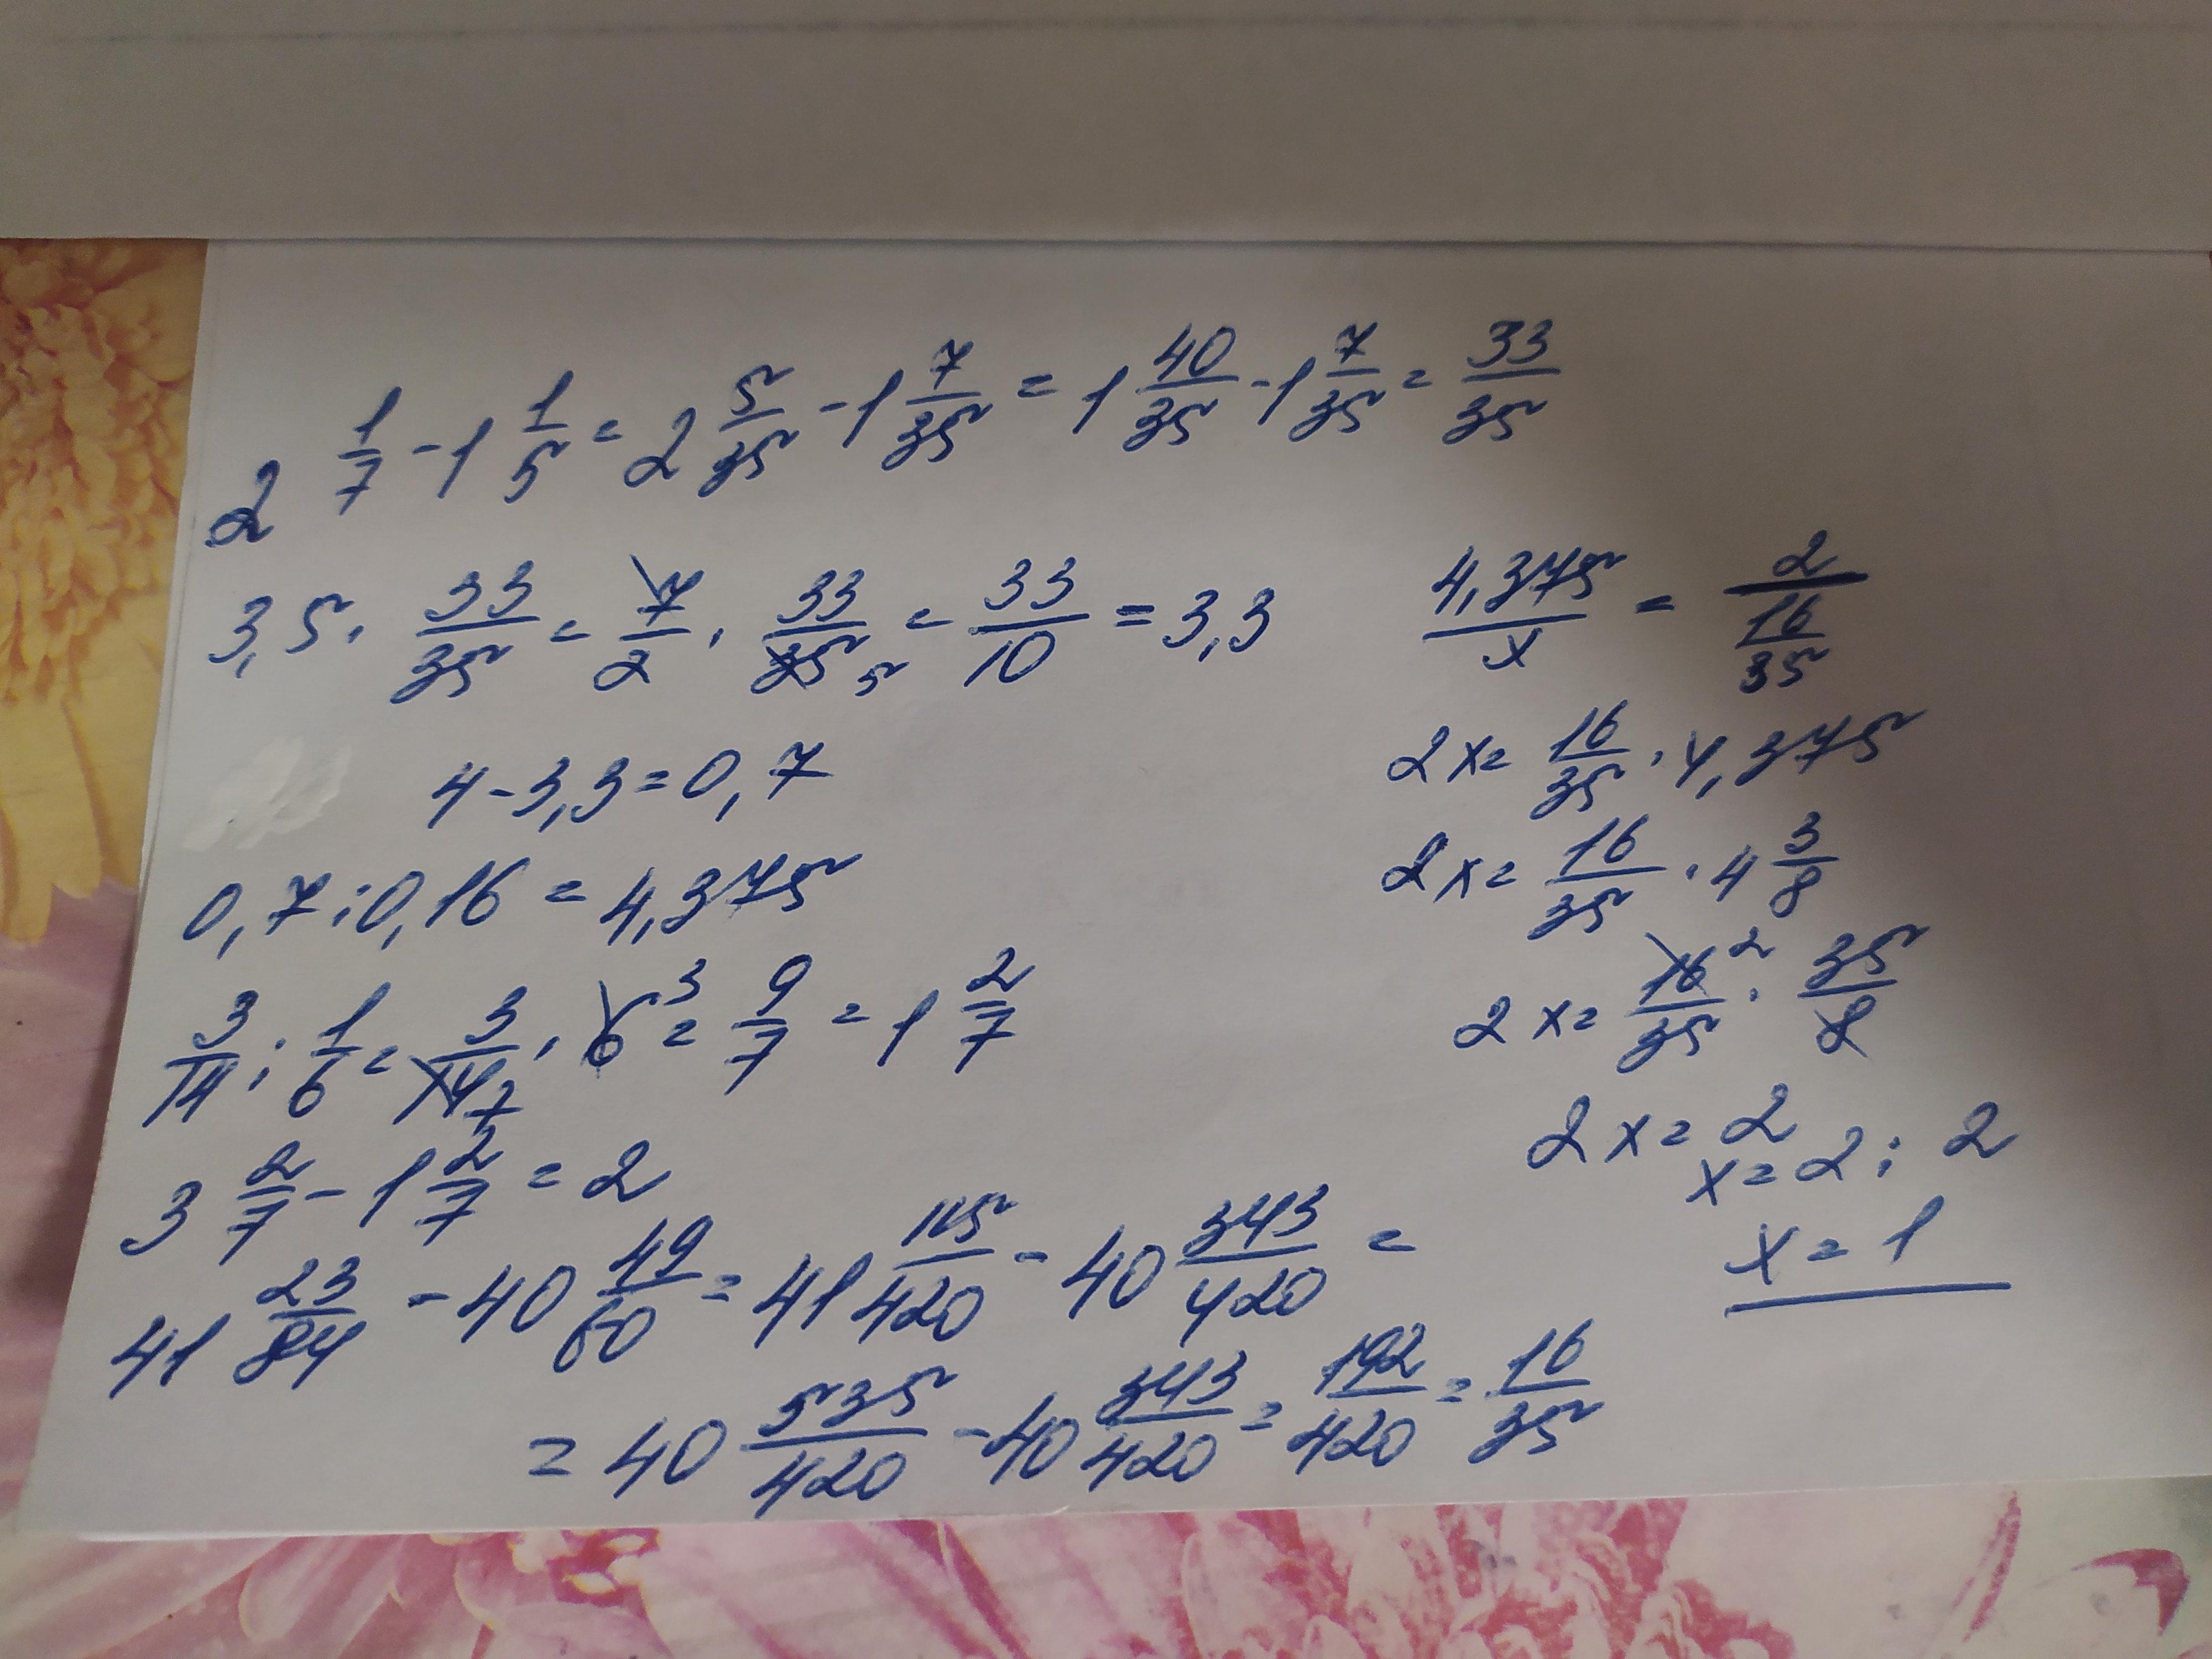 2 1/7 - 1 1/5 = 2 5/35 - 1 7/35 = 1 40/35 - 1 7/35 = 33/35
3,5 · 33/35 = 7/2 · 33/35 5 = 33/10 = 3,3
4 - 3,3 = 0,7
0,7 : 0,16 = 4,375
3/14 : 1/6 = 3/14 7 · 6 3 = 9/7 = 1 2/7
3 2/7 - 1 2/7 = 2
41 23/84 - 40 49/60 = 41 115/420 - 40 343/420 =
= 40 535/420 - 40 343/420 = 192/420 = 16/35
4,375/x = 2/(16/35)
2x = 16/35 · 4,375
2x = 16/35 · 4 3/8
2x = 16 2/35 · 35/8
2x = 2
x = 2 : 2
x = 1